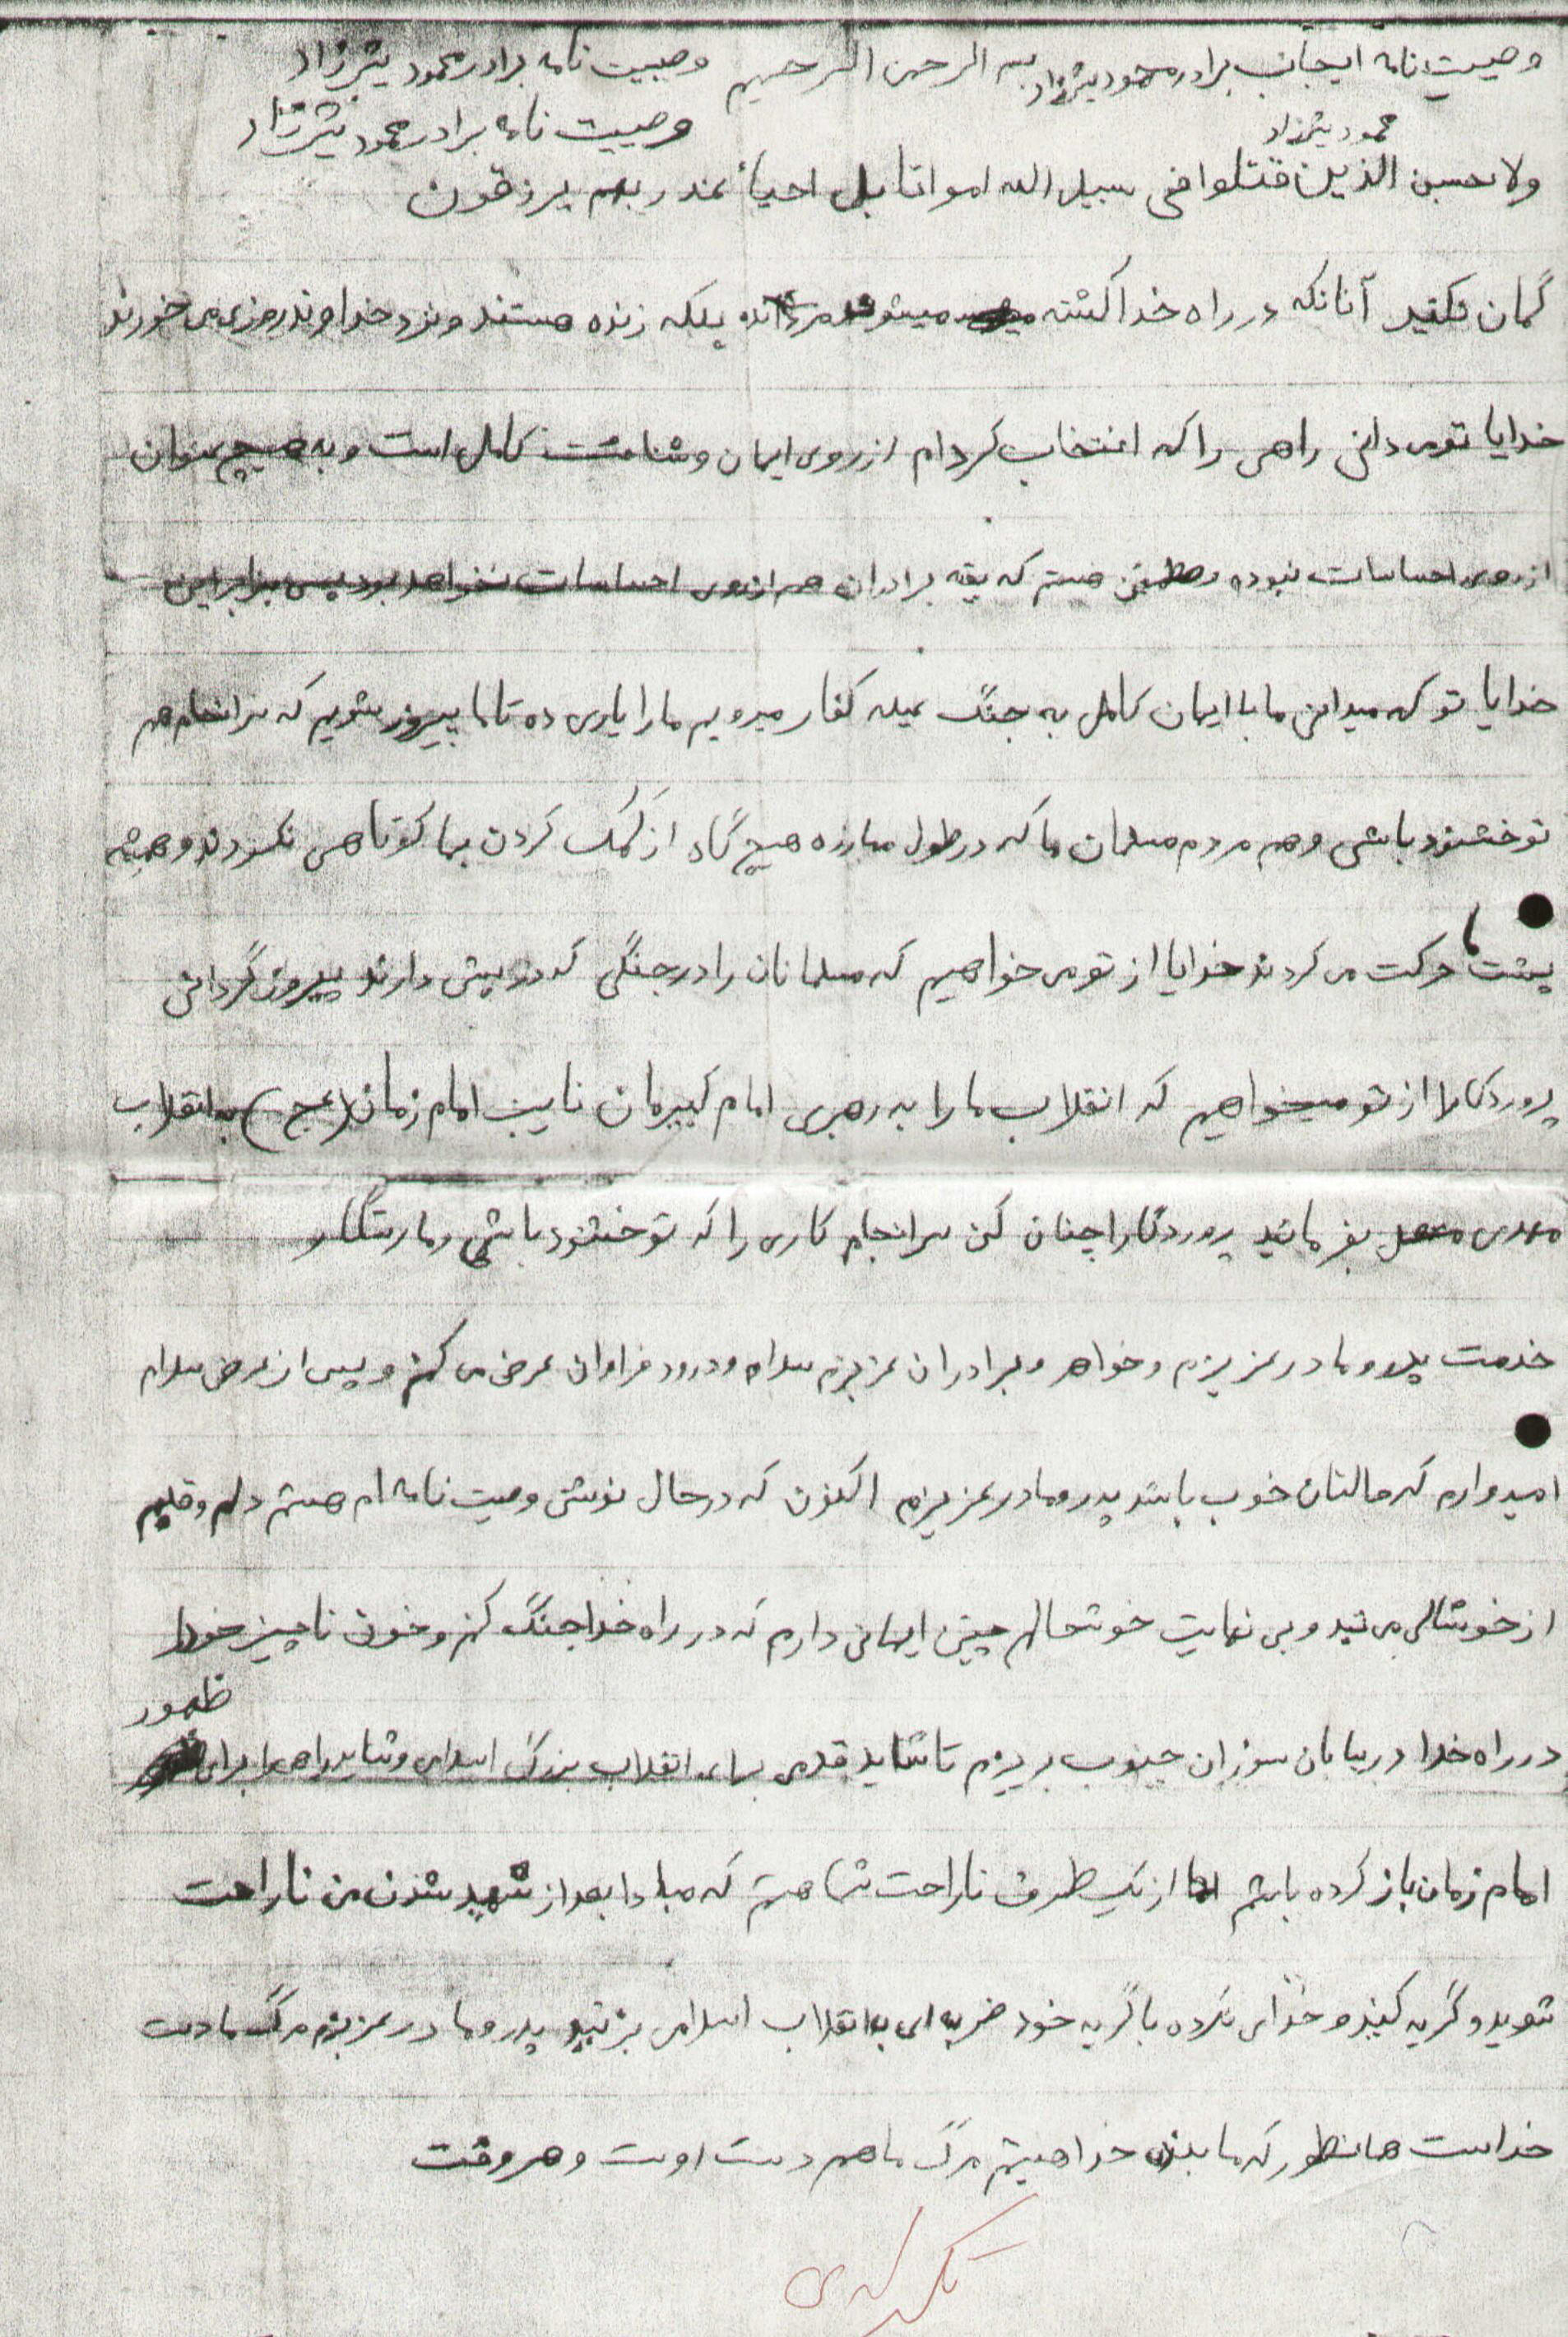 وصیت نامه اینجانب برادر محمود بشرزاد بسه الرحمن الرحیم وصیت نامه برادر محمود بشرزاد
محمود بشرزاد
وصییت نامه برادر محمود بشرزاد
ولا تحسبن الذین قتلوا فی سبیل الله امواتا بل احیاء عند ربهم یرزقون
گمان نکنید آنانکه در راه خدا کشته میشوند مرده‌اند بلکه زنده هستند و نزد خداوند روزی می خورند
خدایا تو می دانی راهی را که انتخاب کرده ام از روی ایمان و شناخت کامل است و به هیچ عنوان
از روی احساسات نبوده و مطمئن هستم که بقیه برادران هم از روی احساسات نخواهد بود پس بنابراین
خدایا تو که میدانی ما با ایمان کامل به جنگ علیه کفار میرویم ما را یاری ده تا ما پیروز شویم که سرانجام هم
تو خشنود باشی و هم مردم مسلمان ما که در طول مبارزه هیچ گاه از کمک کردن بما کوتاهی نکردند و همیشه
پشت ما حرکت می کردند خدایا از تو می خواهیم که مسلمانان را در جنگی که در پیش دارند پیروز گردانی
پروردگارا از تو میخواهیم که انقلاب ما را به رهبری امام کبیرمان نایب امام زمان (عج) به انقلاب
مهدی متصل بفرمائید پروردگارا چنان کن سرانجام کاری را که تو خشنود باشی و ما رستگار
خدمت پدر و مادر عزیزم و خواهر و برادران عزیزم سلام و درود فراوان عرض می کنم و پس از عرض سلام
امیدوارم که حالتان خوب باشد پدر و مادر عزیزم اکنون که در حال نوشتن وصیت نامه ام هستم دلم و قلبم
از خوشالی می تپد و بی نهایت خوشحالم چنین ایمانی دارم که در راه خدا جنگ کنم و خون ناچیز خود را
در راه خدا در بیابان سوزان جنوب بریزم تا شاید قدمی برای انقلاب بزرگ اسلامی و شاید راهی را برای ظهور
امام زمان باز کرده باشم اما از یک طرف ناراحت شما هستم که مبادا بعد از شهید شدن من ناراحت
شوید و گریه کنید و خدای نکرده با گریه خود ضربه ای به انقلاب اسلامی بزنید پدر و مادر عزیزم مرگ ما دست
خداست همانطور که ما بنده خدا هستیم مرگ ما هم دست اوست و هر وقت